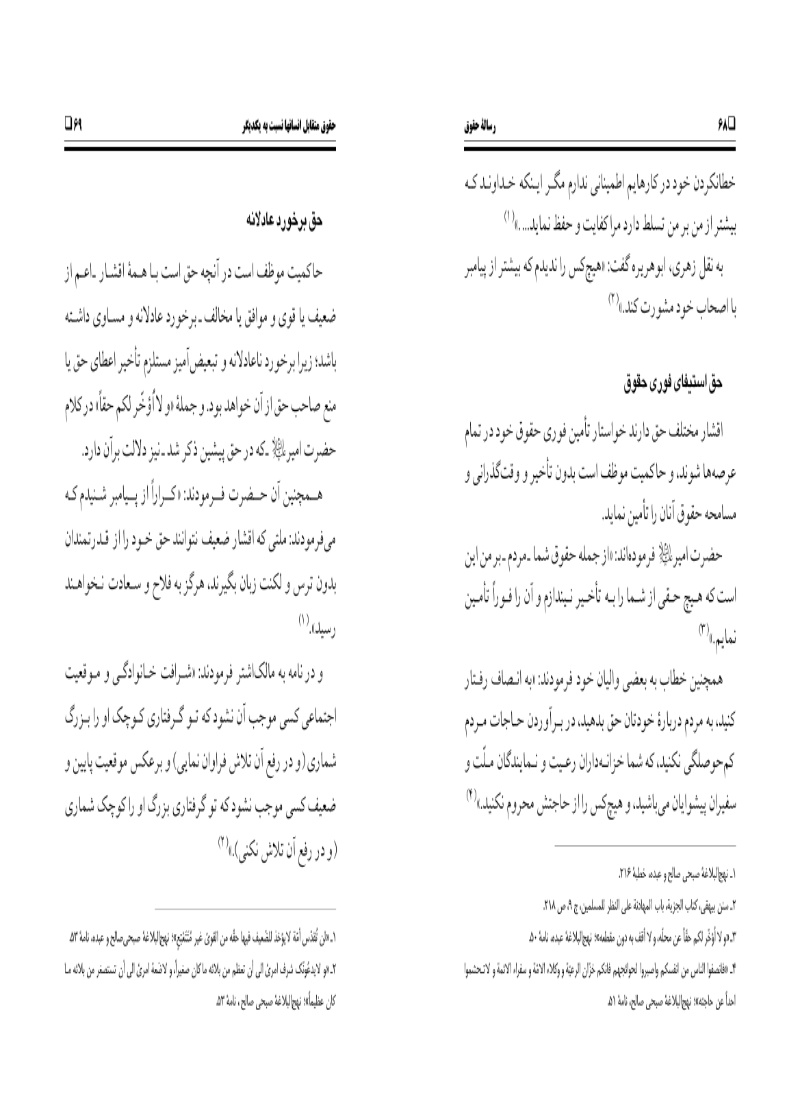 ❑۶۸ رسالهٔ حقوق
خطا‌نکردن خود در کارهایم اطمینانی ندارم مگر اینکه خداوند که
بیشتر از من بر من تسلط دارد مرا کفایت و حفظ نماید....»(۱)
به نقل زهری، ابوهریره گفت: «هیچ‌کس را ندیدم که بیشتر از پیامبر
با اصحاب خود مشورت کند.»(۲)
حق استیفای فوری حقوق
اقشار مختلف حق دارند خواستار تأمین فوری حقوق خود در تمام
عرصه‌ها شوند، و حاکمیت موظف است بدون تأخیر و وقت‌گذرانی و
مسامحه حقوق آنان را تأمین نماید.
حضرت امیر علیه‌السلام فرموده‌اند: «از جمله حقوق شما ـ مردم ـ بر من این
است که هیچ حقی از شما را به تأخیر نیندازم و آن را فوراً تأمین
نمایم.»(۳)
همچنین خطاب به بعضی والیان خود فرمودند: «به انصاف رفتار
کنید، به مردم دربارهٔ خودتان حق بدهید، در برآوردن حاجات مردم
کم‌حوصلگی نکنید، که شما خزانه‌داران رعیت و نمایندگان ملّت و
سفیران پیشوایان می‌باشید، و هیچ‌کس را از حاجتش محروم نکنید.»(۴)
۱ـ نهج‌البلاغهٔ صبحی صالح و عبده، خطبهٔ ۲۱۶.
۲ـ سنن بیهقی، کتاب الجزیة، باب المهادنة علی النظر للمسلمین، ج ۹، ص ۲۱۸.
۳ـ «و لا أؤخّر لکم حقاً عن محلّه، و لا أقف به دون مقطعه»؛ نهج‌البلاغهٔ عبده، نامهٔ ۵۰.
۴ـ «فانصفوا الناس من انفسکم واصبروا لحوائجهم فانکم خزّان الرعیّة و وکلاء الامّة و سفراء الائمة و لاتحشموا
احداً عن حاجته»؛ نهج‌البلاغهٔ صبحی صالح، نامهٔ ۵۱.
حقوق متقابل انسانها نسبت به یکدیگر ۶۹❑
حق برخورد عادلانه
حاکمیت موظف است در آنچه حق است با همهٔ اقشار ـ اعم از
ضعیف یا قوی و موافق یا مخالف ـ برخورد عادلانه و مساوی داشته
باشد؛ زیرا برخورد ناعادلانه و تبعیض‌آمیز مستلزم تأخیر اعطای حق یا
منع صاحب حق از آن خواهد بود. و جملهٔ «و لا اُؤخّر لکم حقاً» در کلام
حضرت امیر علیه‌السلام ـ که در حق پیشین ذکر شد ـ نیز دلالت بر آن دارد.
همچنین آن حضرت فرمودند: «کراراً از پیامبر شنیدم که
می‌فرمودند: ملتی که اقشار ضعیف نتوانند حق خود را از قدرتمندان
بدون ترس و لکنت زبان بگیرند، هرگز به فلاح و سعادت نخواهند
رسید».(۱)
و در نامه به مالک‌اشتر فرمودند: «شرافت خانوادگی و موقعیت
اجتماعی کسی موجب آن نشود که تو گرفتاری کوچک او را بزرگ
شماری (و در رفع آن تلاش فراوان نمایی) و برعکس موقعیت پایین و
ضعیف کسی موجب نشود که تو گرفتاری بزرگ او را کوچک شماری
(و در رفع آن تلاش نکنی).»(۲)
۱ـ «لن تُقدّس أمّة لایؤخذ للضّعیف فیها حقّه من القویّ غیر مُتَتَعتِع»؛ نهج‌البلاغهٔ صبحی‌صالح و عبده، نامهٔ ۵۳.
۲ـ «و لایدعُونّک شرف امرئ الی أن تعظم من بلائه ماکان صغیراً، و لاضَعة امرئ الی أن تستصغر من بلائه ما
کان عظیماً»؛ نهج‌البلاغهٔ صبحی صالح، نامهٔ ۵۳.